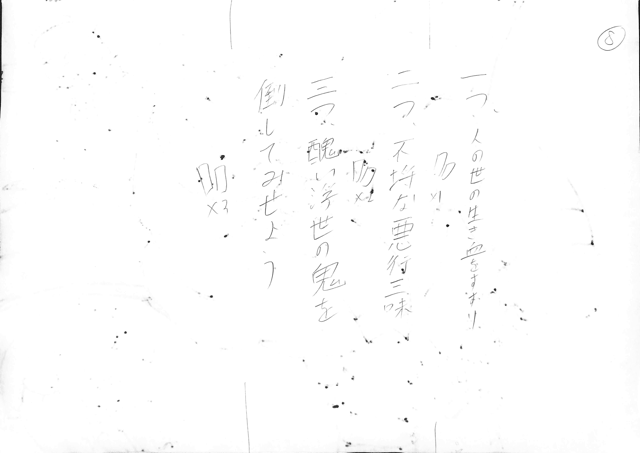 ⑧
一つ、人の世の生き血をすすり、
×1
二つ、不埒な悪行三味
×2
三つ、醜い浮世の鬼を
倒してみせよう
×3